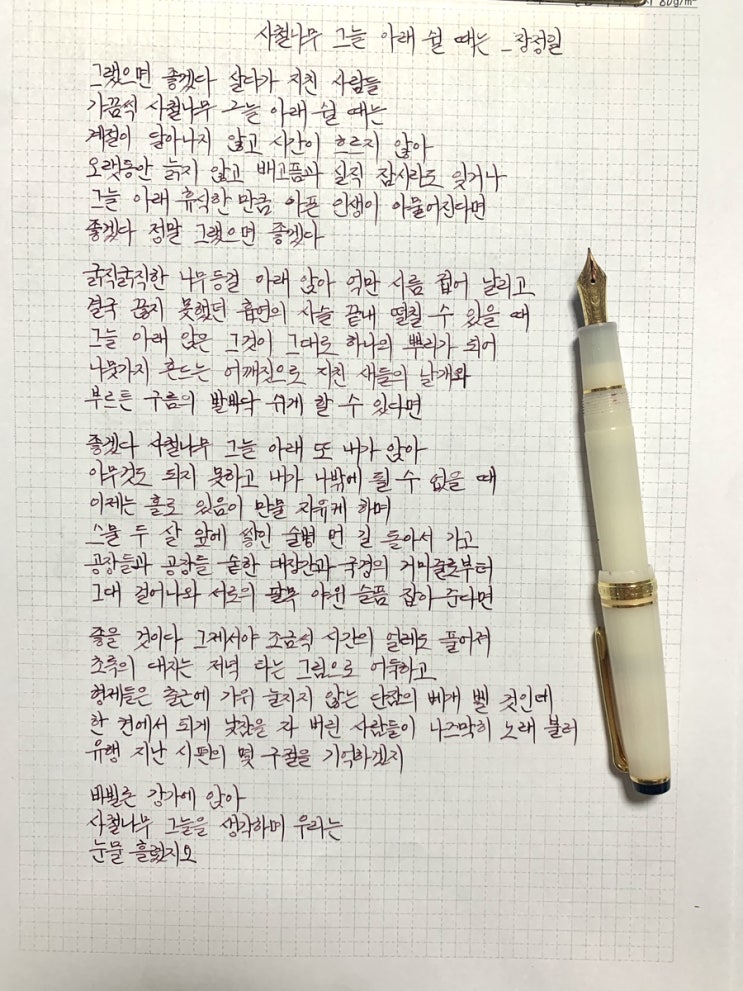 80g/m²
사철나무 그늘 아래 쉴 때는 _장정일
그랬으면 좋겠다 살다가 지친 사람들
가끔씩 사철나무 그늘 아래 쉴 때는
계절이 달아나지 않고 시간이 흐르지 않아
오랫동안 늙지 않고 배고픔과 실직 잠시라도 잊거나
그늘 아래 휴식한 만큼 아픈 인생이 아물어진다면
좋겠다 정말 그랬으면 좋겠다
굵직굵직한 나무등걸 아래 앉아 억만 시름 접어 날리고
결국 끊지 못했던 흡연의 사슬 끝내 떨칠 수 있을 때
그늘 아래 앉은 그것이 그대로 하나의 뿌리가 되어
나뭇가지 흔드는 어깨짓으로 지친 새들의 날개와
부르튼 구름의 발바닥 쉬게 할 수 있다면
좋겠다 사철나무 그늘 아래 또 내가 앉아
아무것도 되지 못하고 내가 나밖에 될 수 없을 때
이제는 홀로 있음이 만물 자유케 하며
스물 두 살 앞에 쌓인 술병 먼 길 돌아서 가고
공장들과 공장들 숱한 대장간과 국경의 거미줄로부터
그대 걸어나와 서로의 팔목 야윈 슬픔 잡아 준다면
좋을 것이다 그제서야 조금씩 시간의 얼레도 풀어져
초록의 대지는 저녁 타는 그림으로 어둑하고
형제들은 출근에 가위 눌리지 않는 단잠의 베개 벨 것인데
한 켠에서 되게 낮잠을 자 버린 사람들이 나즈막히 노래 불러
유행 지난 시편의 몇 구절을 기억하겠지
바빌론 강가에 앉아
사철나무 그늘을 생각하며 우리는
눈물 흘렸지요